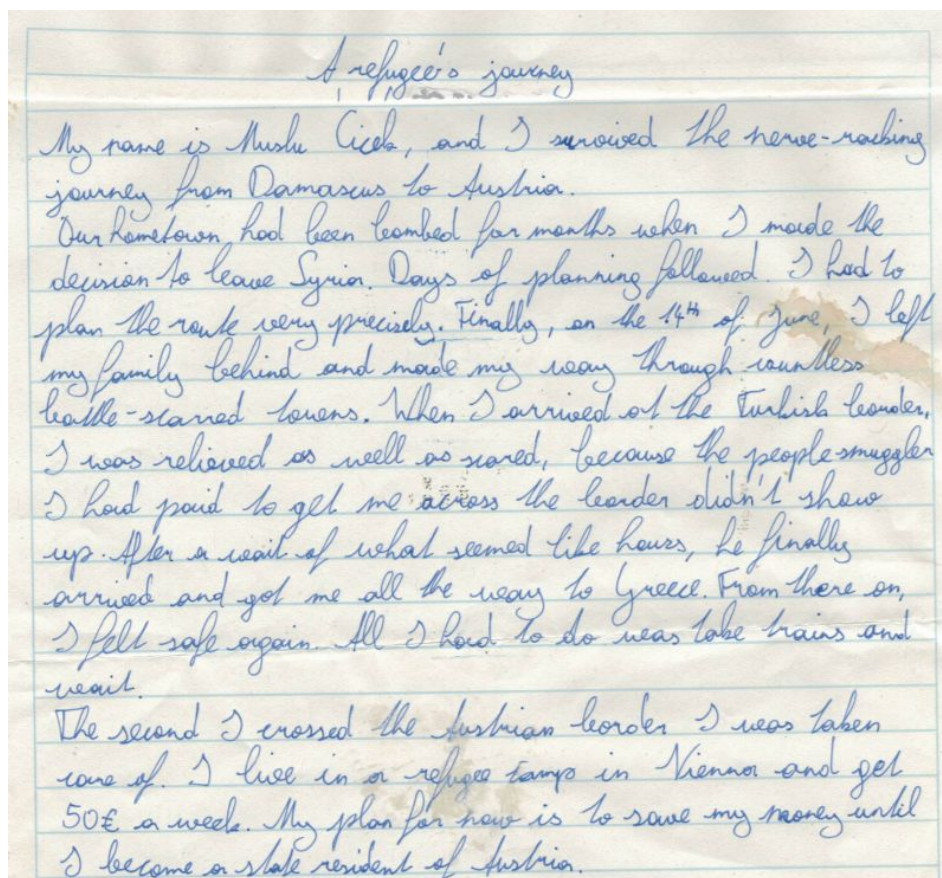 A refugee's journey
My name is Muslu Cicek, and I survived the nerve-racking
journey from Damascus to Austria.
Our hometown had been bombed for months when I made the
decision to leave Syria. Days of planning followed. I had to
plan the route very precisely. Finally, on the 14th of June, I left
my family behind and made my way through countless
battle-scarred towns. When I arrived at the Turkish border,
I was relieved as well as scared, because the people smuggler
I had paid to get me across the border didn't show
up. After a wait of what seemed like hours, he finally
arrived and got me all the way to Greece. From there on,
I felt safe again. All I had to do was take trains and
wait.
The second I crossed the Austrian border I was taken
care of. I live in a refugee camp in Vienna and get
50€ a week. My plan for now is to save my money until
I become a state resident of Austria.